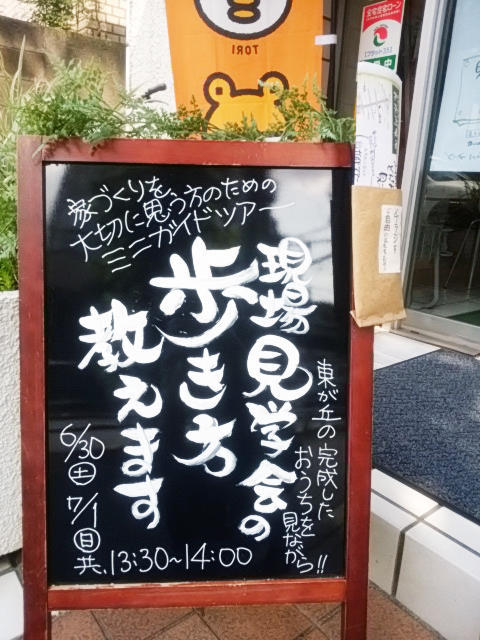 TORI
住宅ローン
家づくりを、
大切に思う方のための
ミニガイドツアー
現場見学会の
歩き方
教えます
東が丘の完成した
おうちを
見ながら!!
6/30
土
7/1
日
共、13:30~14:00
チラシです
ご自由に